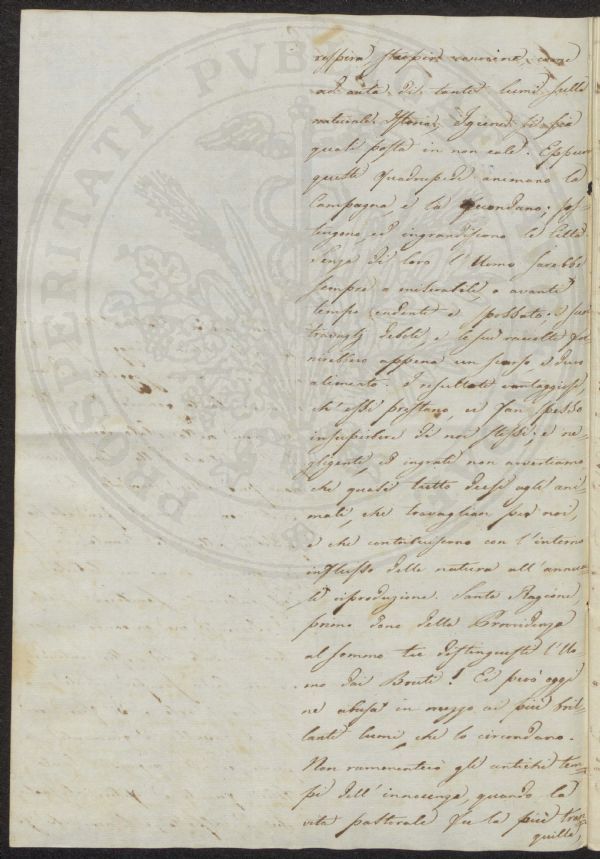 respira, stupir conviene, come
ad onta di tanti lumi sulla
naturale Istoria, Igiene, si sia
quasi posta in non cale. Eppure
questi Quadrupedi animano la
Campagna, e la fecondano; sos-
tengono, ed ingrandiscono le Città
Senza di loro l'Uomo sarebbe
sempre a miserabile, o avanti
tempo cadente e spossato, i suoi
travaglj deboli, e le sue raccolte for-
nirebbero appena un scarso, e duro
alimento. I resultati vantaggiosi,
ch'essi prestano, ci fan spesso
insuperbire di noi stessi; e ne-
gligenti, ed ingrati non avvertiamo
che quasi tutto deesi agli ani-
mali, che travaglian per noi,
e che contribuiscono con l'interno
influsso della natura all'annua-
le riproduzione. Santa Ragione
primo dono della Providenza
al sommo tu distinguesti l'Uo
mo dai Bruti! Ei però oggi
ne abusa in mezzo ai più bril-
lanti lumi, che lo circondano.
Non rammenterò gli antichi tem-
pi dell'innocenza, quando la
vita pastorale fu la più tran-
quilla,
PROSPERITATI PVBL